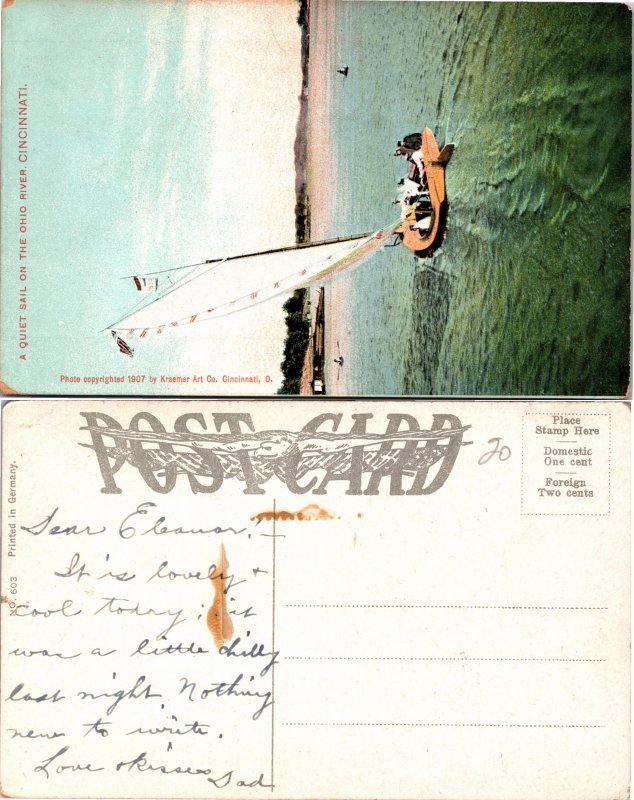 A QUIET SAIL ON THE OHIO RIVER, CINCINNATI.
Photo copyrighted 1907 by Kraemer Art Co. Cincinnati, O.
POST CARD
20
Place
Stamp Here
Domestic
One cent
Foreign
Two cents
NO. 603 Printed in Germany.
Dear Eleanor! –
It is lovely &
cool today; it
was a little chilly
last night. Nothing
new to write.
Love & kisses
Dad